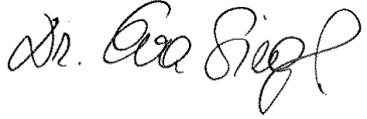 Dr. Eva Siegl